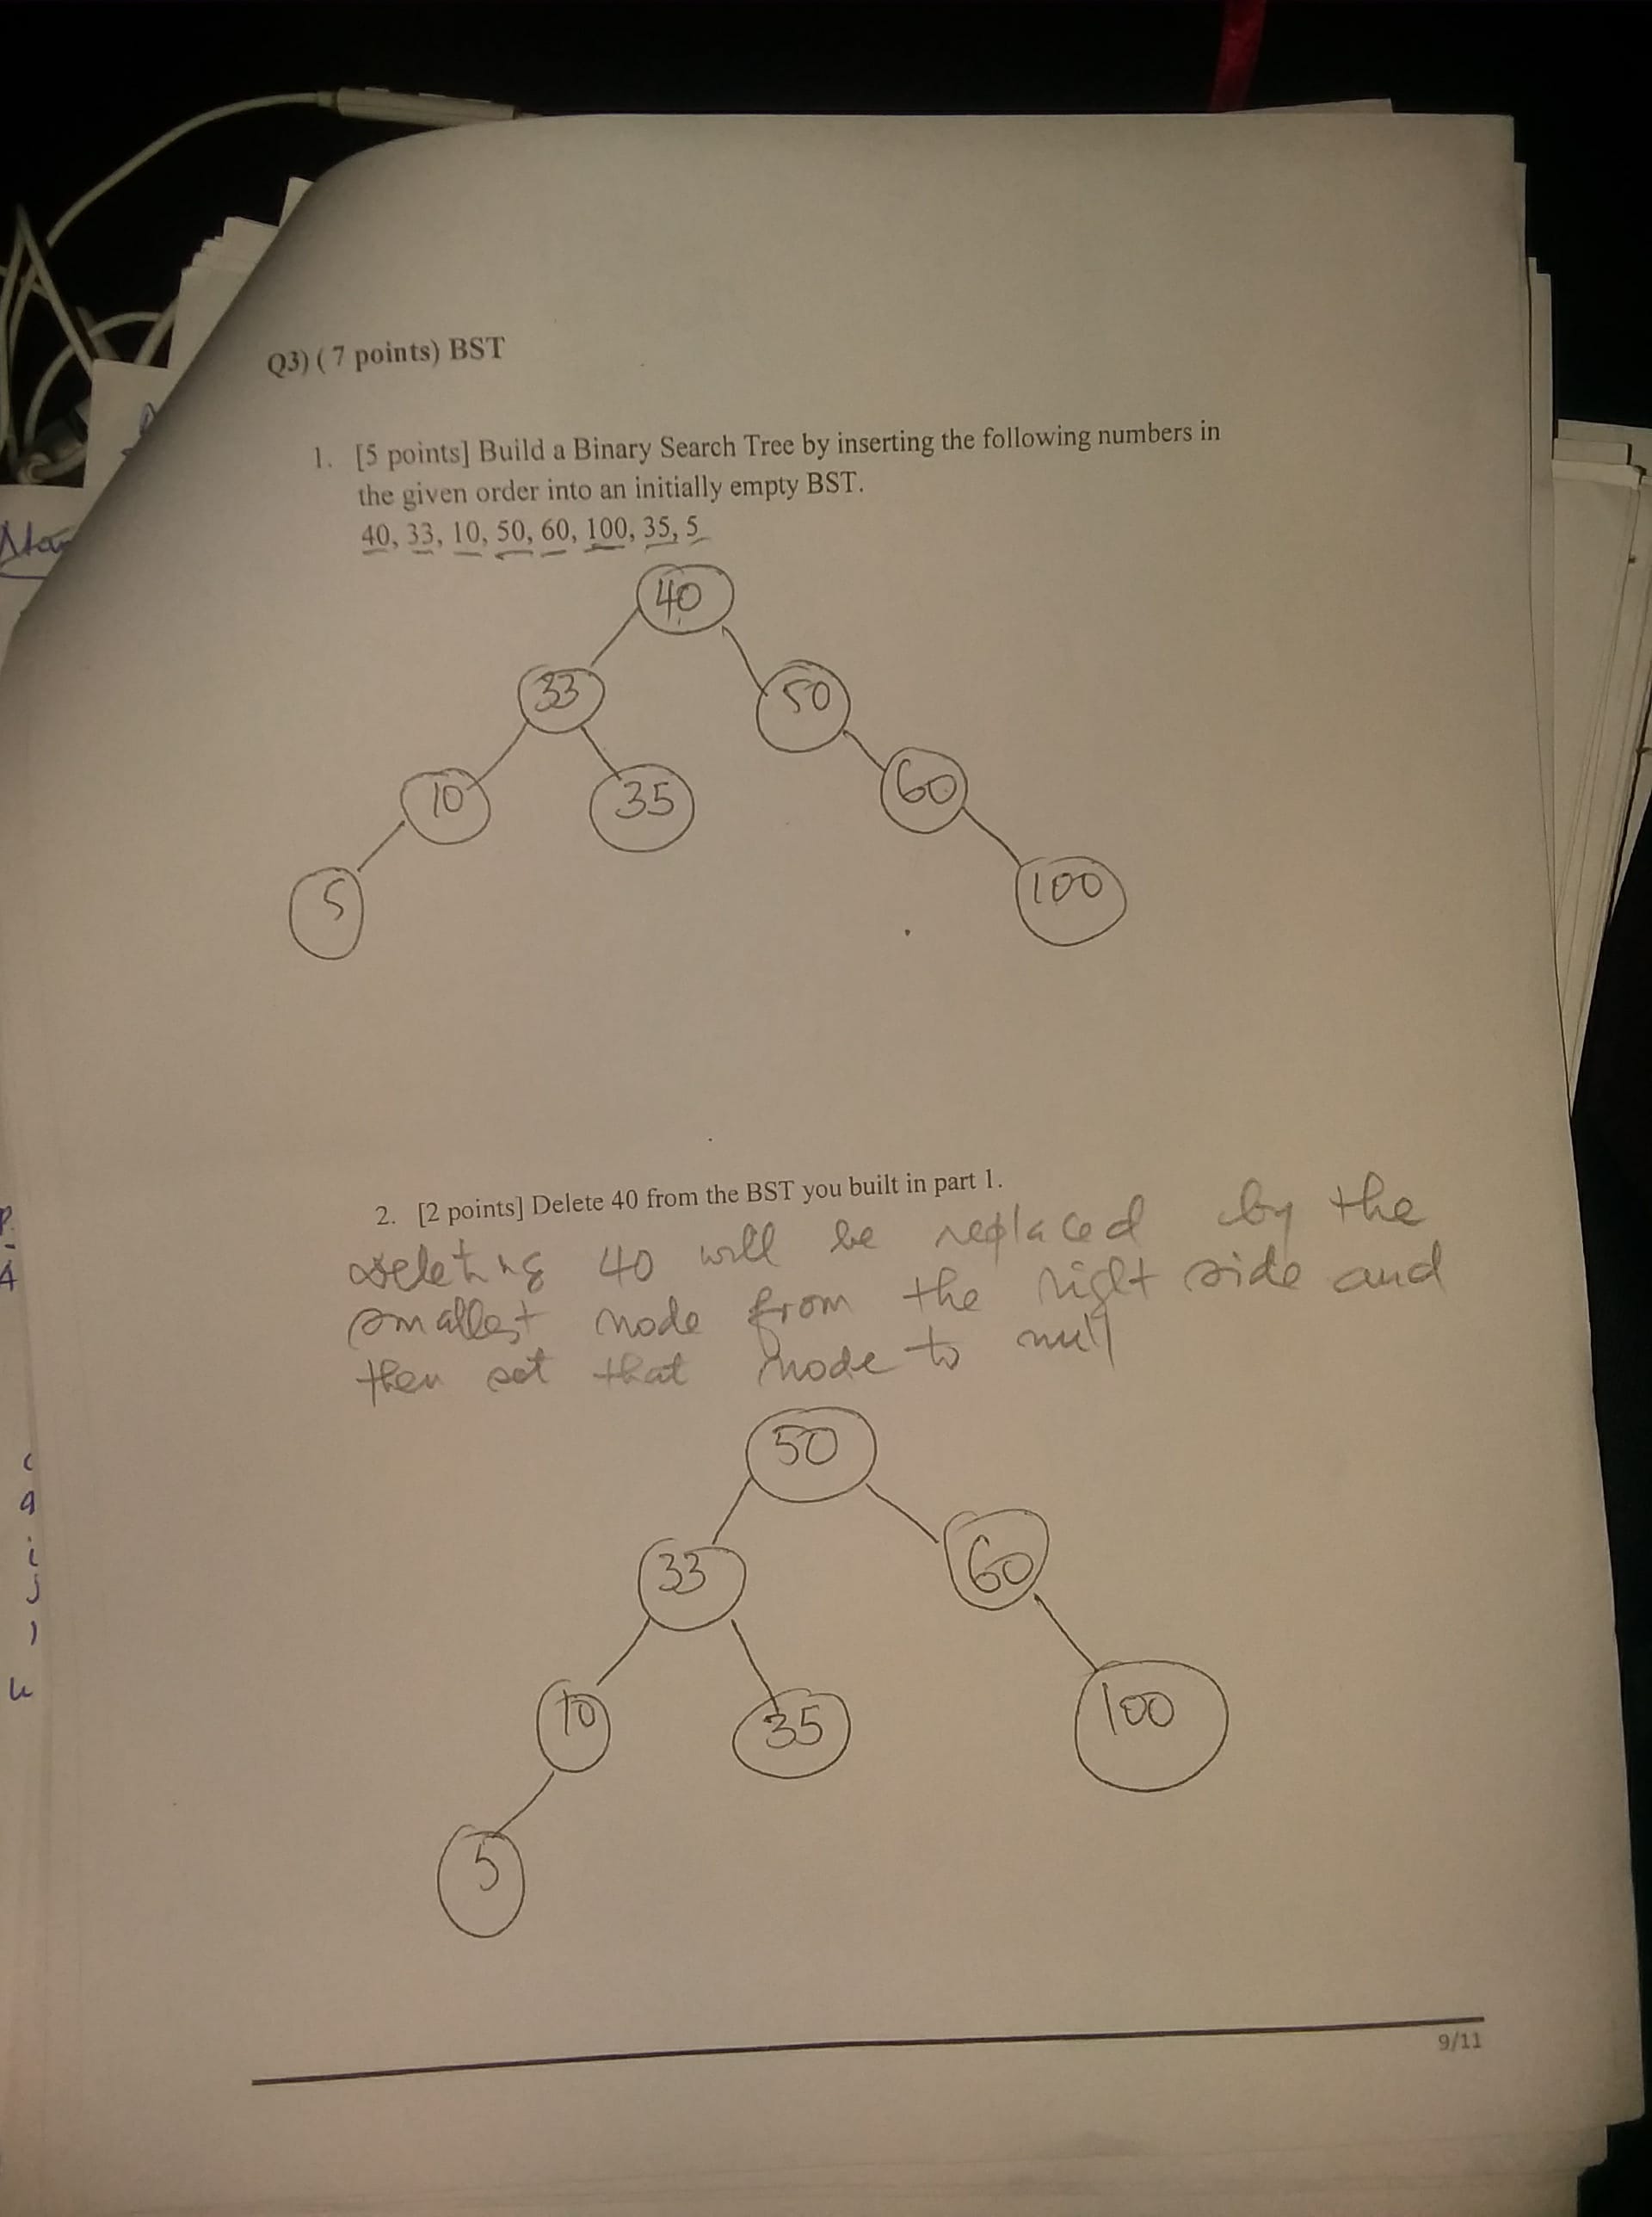 Q3) ( 7 points) BST
1. [5 points] Build a Binary Search Tree by inserting the following numbers in
the given order into an initially empty BST.
40, 33, 10, 50, 60, 100, 35, 5
40
33
50
10
35
60
5
100
2. [2 points] Delete 40 from the BST you built in part 1.
deleting 40 will be replaced by the
smallest node from the right side and
then set that node to null
50
33
60
10
35
100
5
9/11